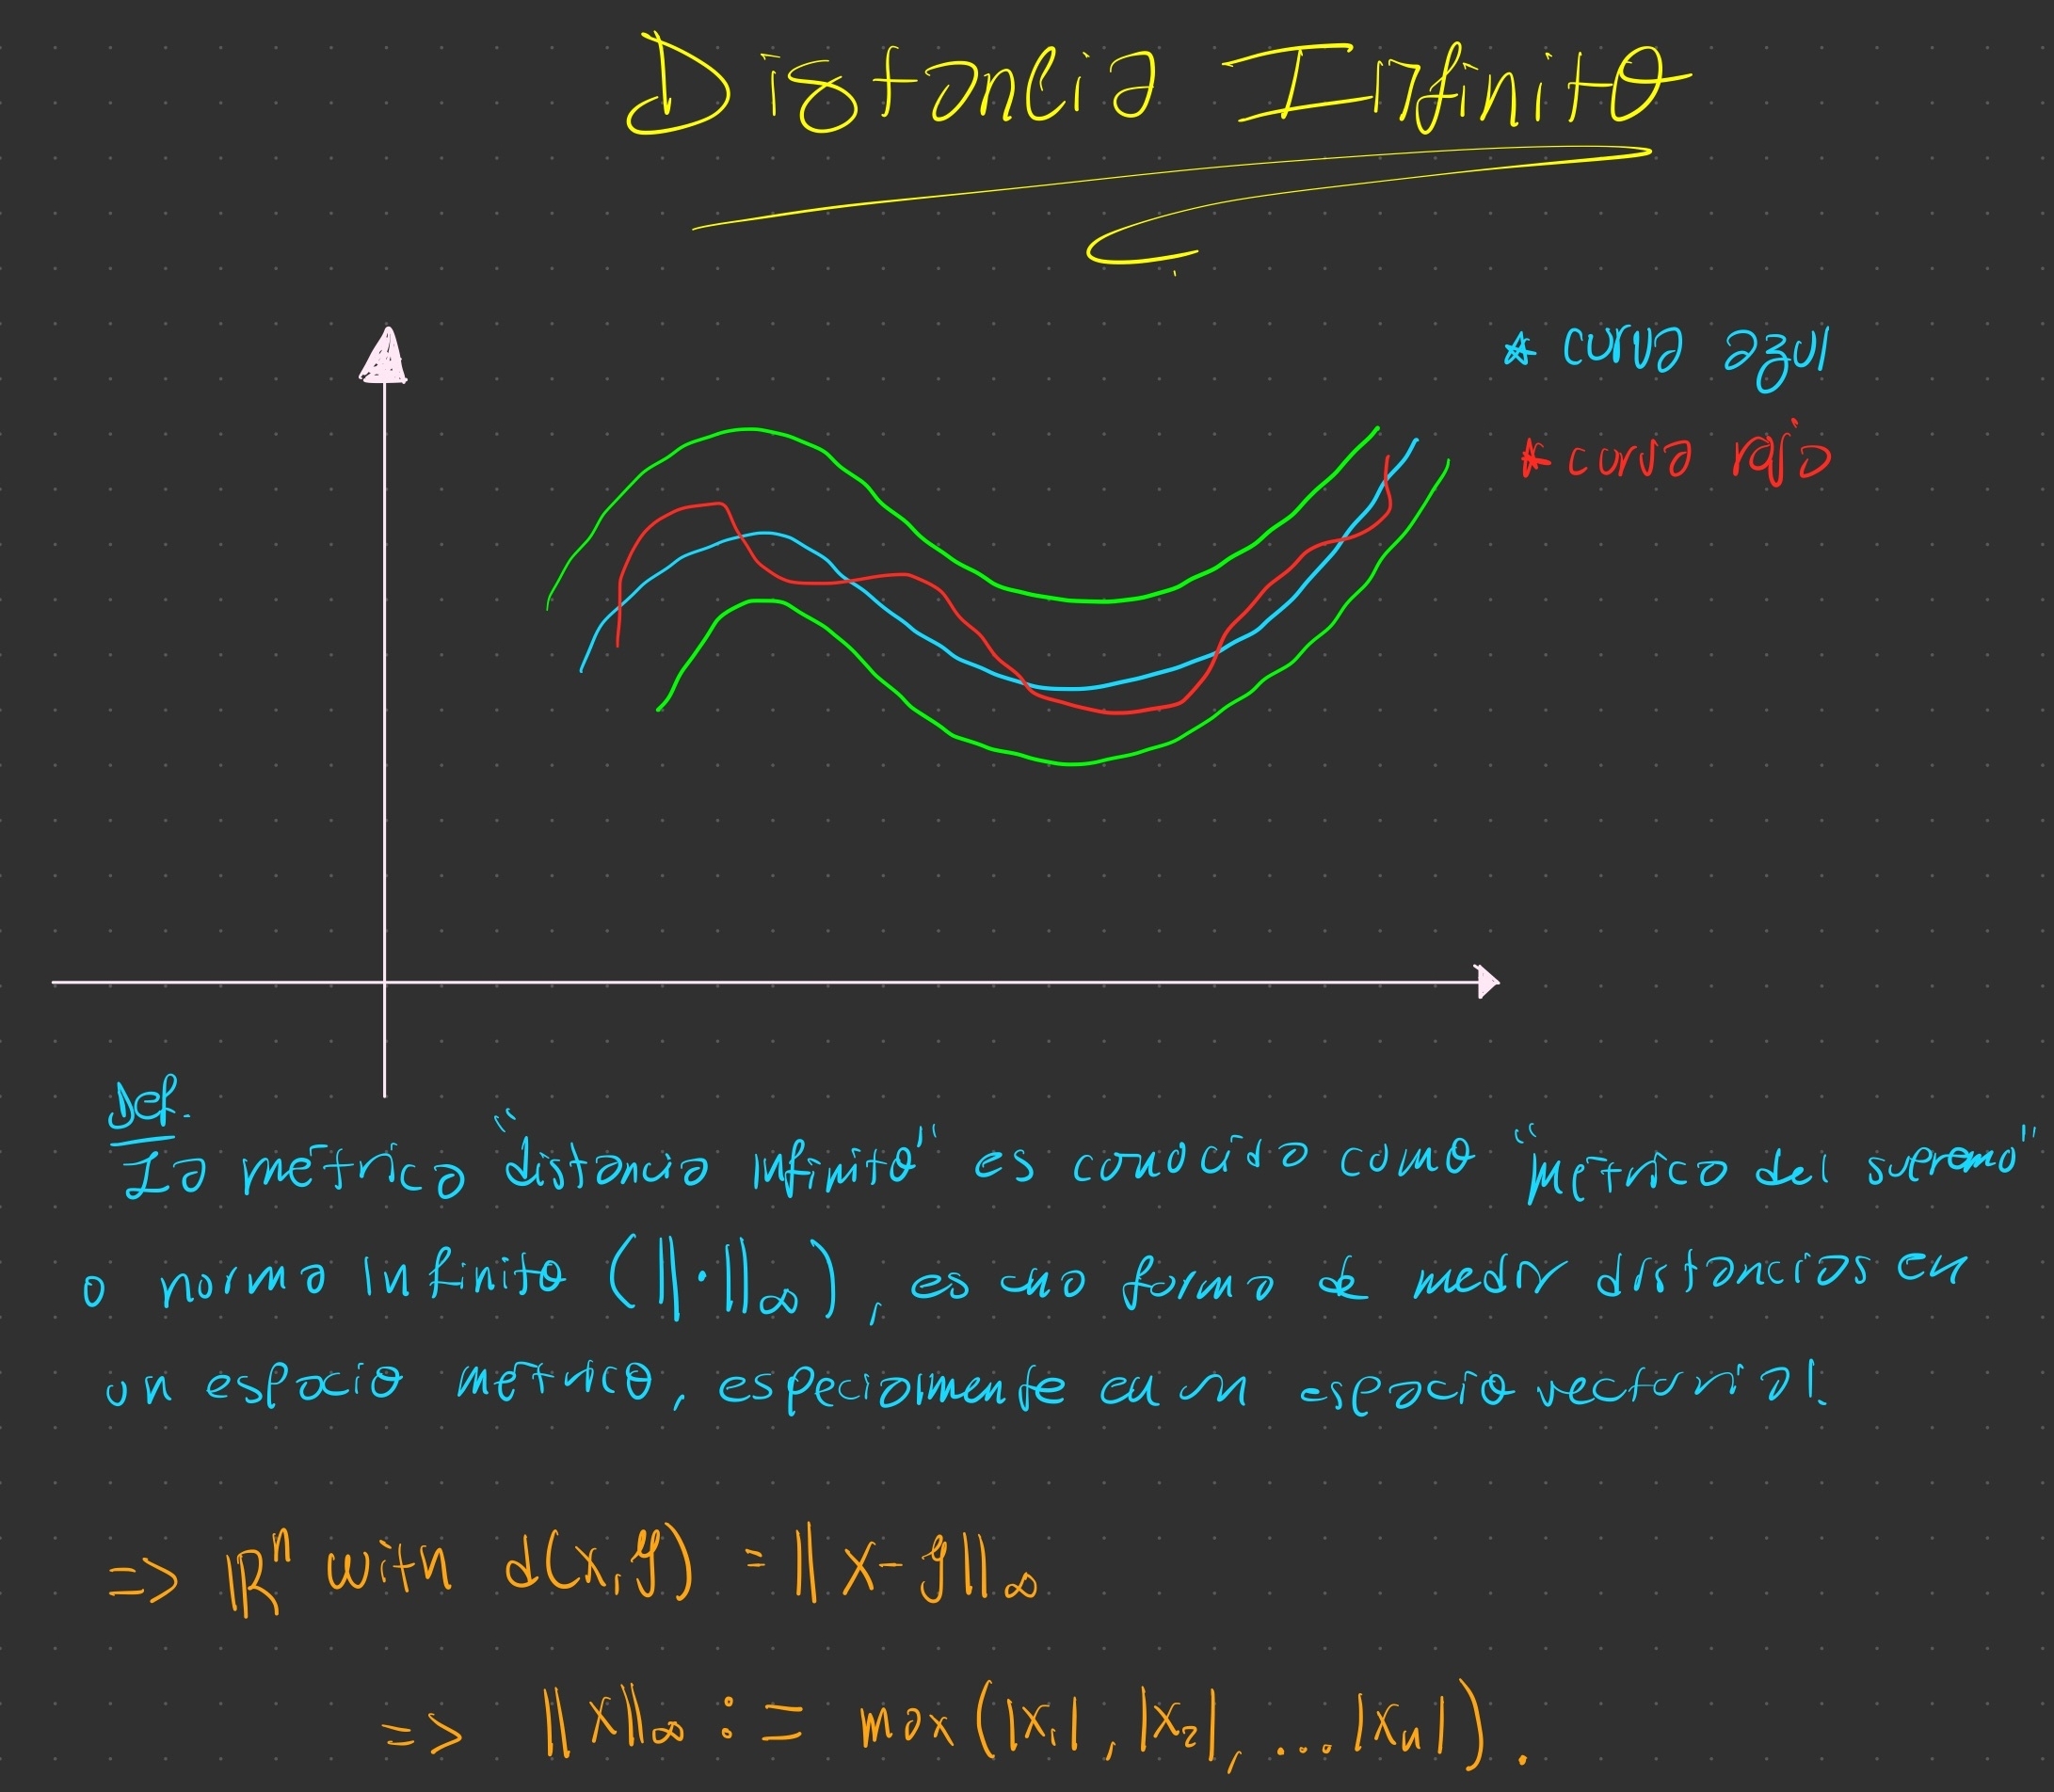 Distancia Infinito
* curva azul
* curva roja
Def.
La métrica "distancia infinito" es conocida como "métrica del supremo"
o norma infinito (||·||∞), es una forma de medir distancias en
un espacio métrico, especialmente en un espacio vectorial.
=> ℝⁿ with d(x,y) = ||x-y||∞
=> ||x||∞ := max(|x₁|, |x₂|, ...|xₙ|).